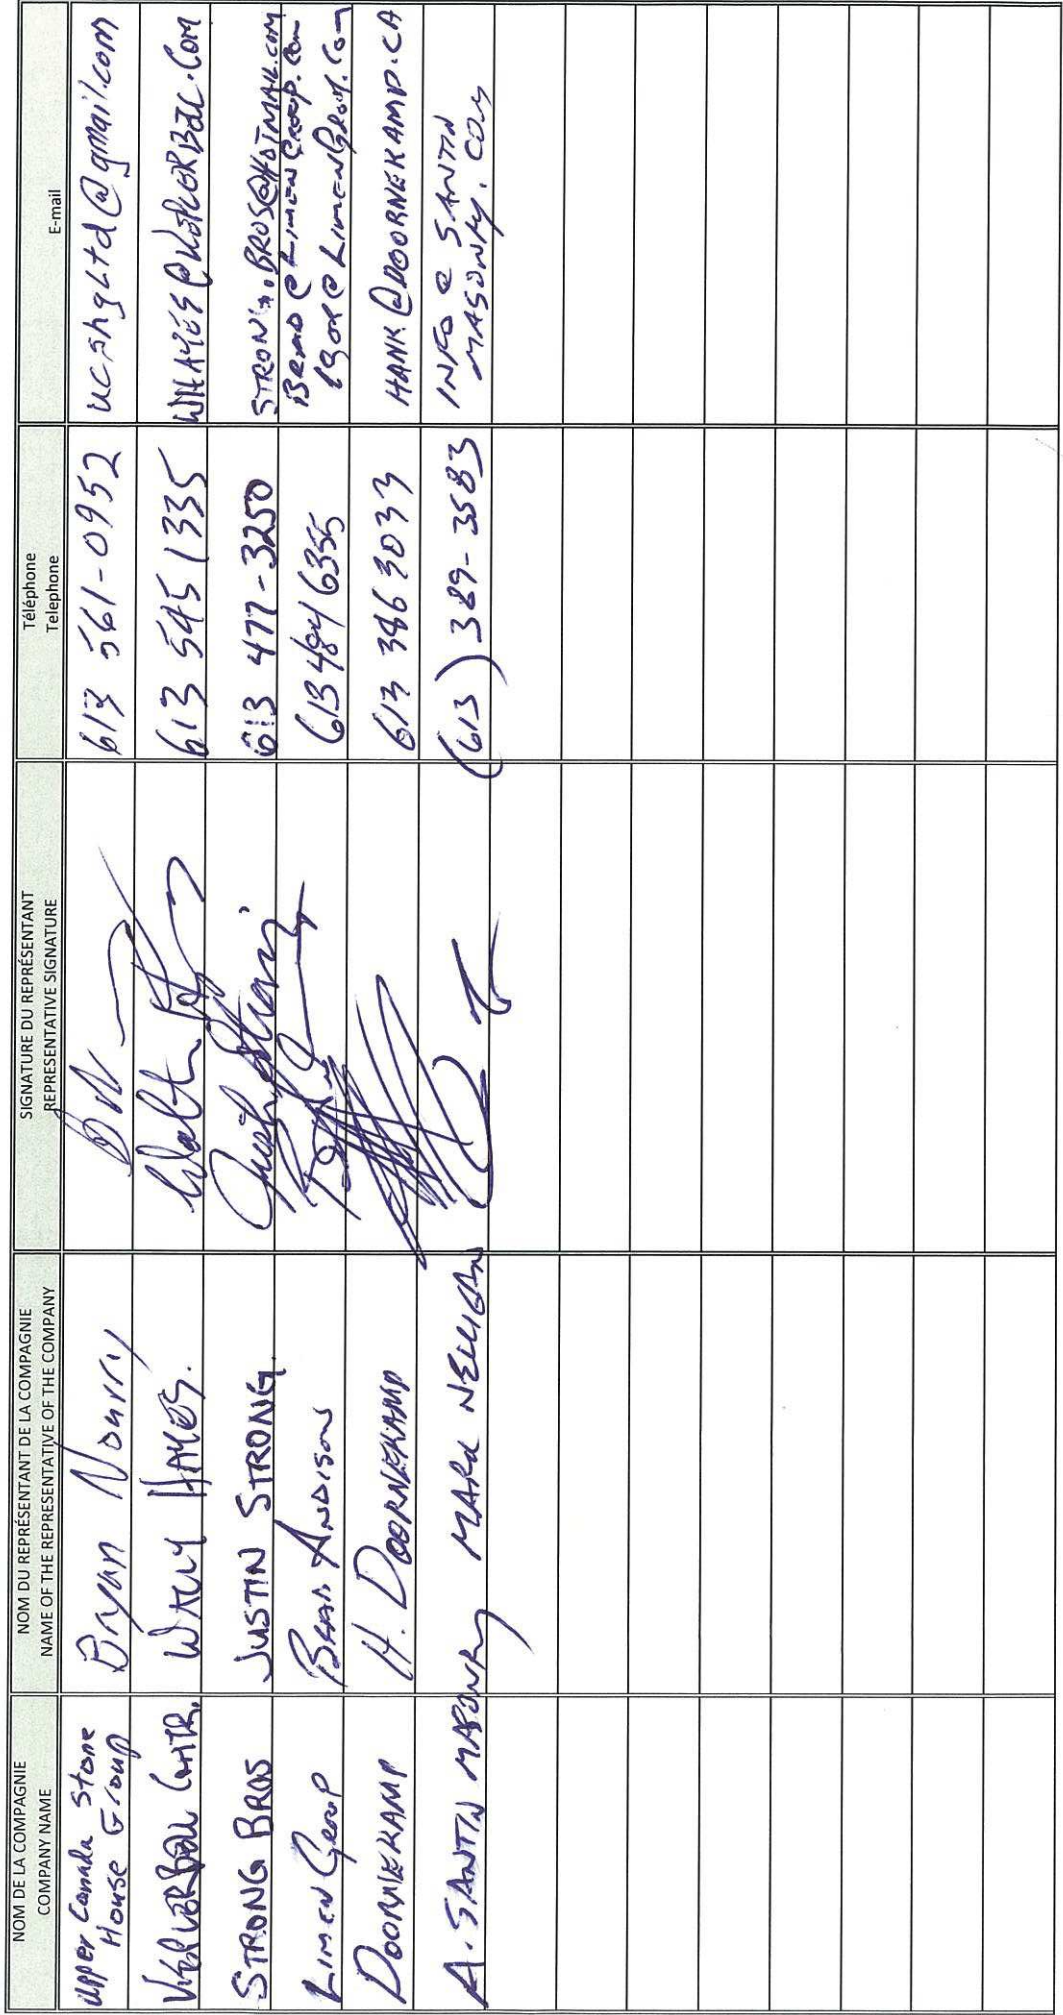 NOM DE LA COMPAGNIE
COMPANY NAME
NOM DU REPRÉSENTANT DE LA COMPAGNIE
NAME OF THE REPRESENTATIVE OF THE COMPANY
SIGNATURE DU REPRÉSENTANT
REPRESENTATIVE SIGNATURE
Téléphone
Telephone
E-mail
Upper Canada Stone
House Group
Bryan Nourry
613 561-0952
ucshgltd@gmail.com
WALLY HAYES.
613 545 1335
STRONG BROS
JUSTIN STRONG.
613 477-3250
STRONG.BROS@HOTMAIL.COM
LIMEN GROUP
BRAD ANDISON
613 484 6355
BRAD@LIMENGROUP.COM
IGOR@LIMENGROUP.COM
DOORNEKAMP
H. DOORNEKAMP
613 386 3033
HANK@DOORNEKAMP.CA
A. SANTIN MASONRY
MARK NELLIGAN
(613) 389-3583
INFO @ SANTIN
MASONRY.COM